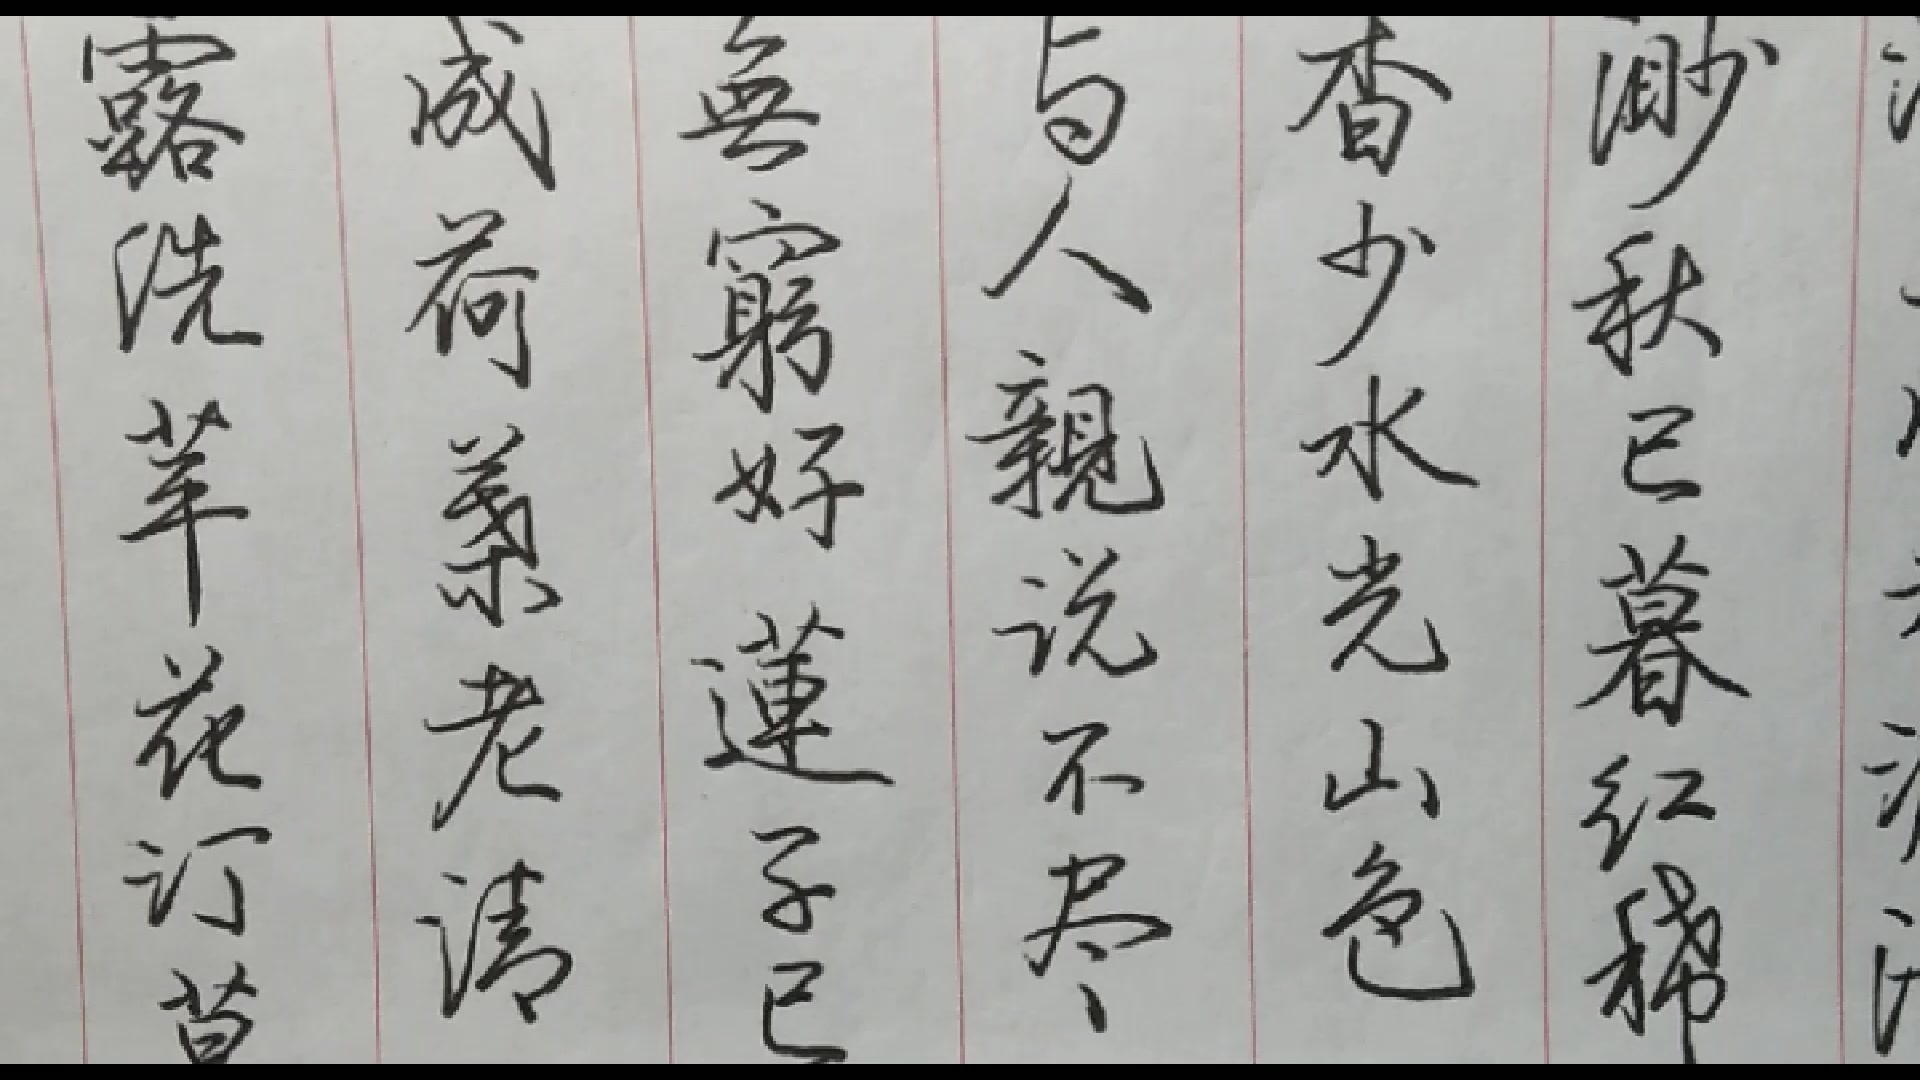 渺秋已暮红稀
香少水光山色
与人親说不尽
無窮好蓮子已
成荷葉老清
露洗苹花汀草